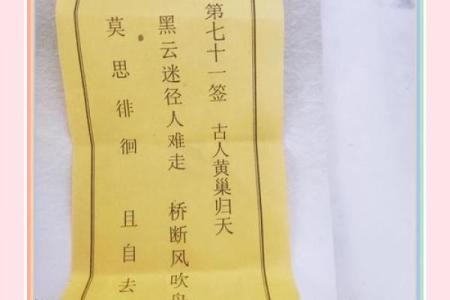 第七十一签 古人黄巢归天
黑云迷径人难走 桥断风吹
莫思徘徊 且自去